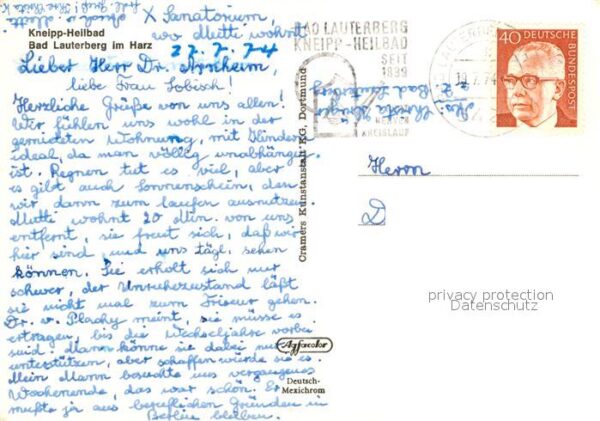 X Sanatorium,
wo Mutti wohnt
Kneipp-Heilbad
Bad Lauterberg im Harz
27.7.74
Lieber Herr Dr. Arnheim,
liebe Frau Sobisch!
Herzliche Grüße von uns allen!
Wir fühlen uns wohl in der
gemieteten Wohnung, mit Kindern
ideal, da man völlig unabhängig
ist. Regnen tut es viel, aber
es gibt auch Sonnenschein, den
wir dann zum laufen ausnutzen.
Mutti wohnt 20 Min. von uns
entfernt, sie freut sich, daß wir
hier sind und uns tägl. sehen
können. Sie erholt sich nur
schwer, der Unruhezustand läßt
sie nicht mal zum Friseur gehen.
Dr. v. Plachy meint, sie müsse es
ertragen, bis die Wechseljahre vorbei
sind. Mann könne sie dabei nur
unterstützen, aber schaffen würde sie es.
Mein Mann besuchte uns vergangenes
Wochenende, das war schön. Er
mußte ja aus beruflichen Gründen in
Berlin bleiben.
Cramers Kunstanstalt KG, Dortmund
Agfacolor
Deutsch-
Mexichrom
BAD LAUTERBERG
KNEIPP-HEILBAD
SEIT
1839
HERZ
NERVEN
KREISLAUF
40 DEUTSCHE BUNDESPOST
Bad Lauterberg
Herrn
D
privacy protection
Datenschutz